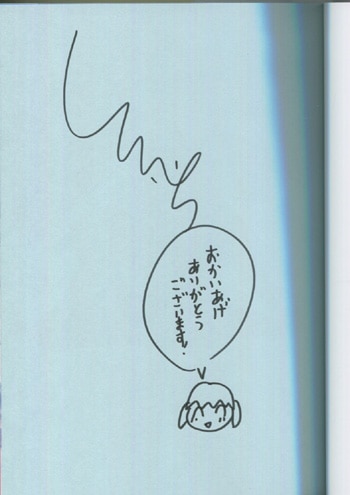 おかいあげ
ありがとう
ございます.